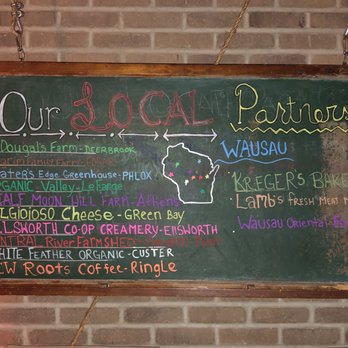 Our LOCAL Partners
Dougals Farm - DEERBROOK
Family Farm
ATERS Edge Greenhouse - PHLOX
ORGANIC Valley - LaFarge
HALF MOON HILL FARM - Athens
BELGIOIOSO CHEESE - GREEN BAY
ELLSWORTH CO-OP CREAMERY - EllSWORTH
CENTRAL RIVER FARMSHED
WHITE FEATHER ORGANIC - CUSTER
NEW ROOTS COFFEE - RINGLE
WAUSAU
KREGER'S BAKE
LaMb's FRESH MEAT
WAUSAU ORIENTAL